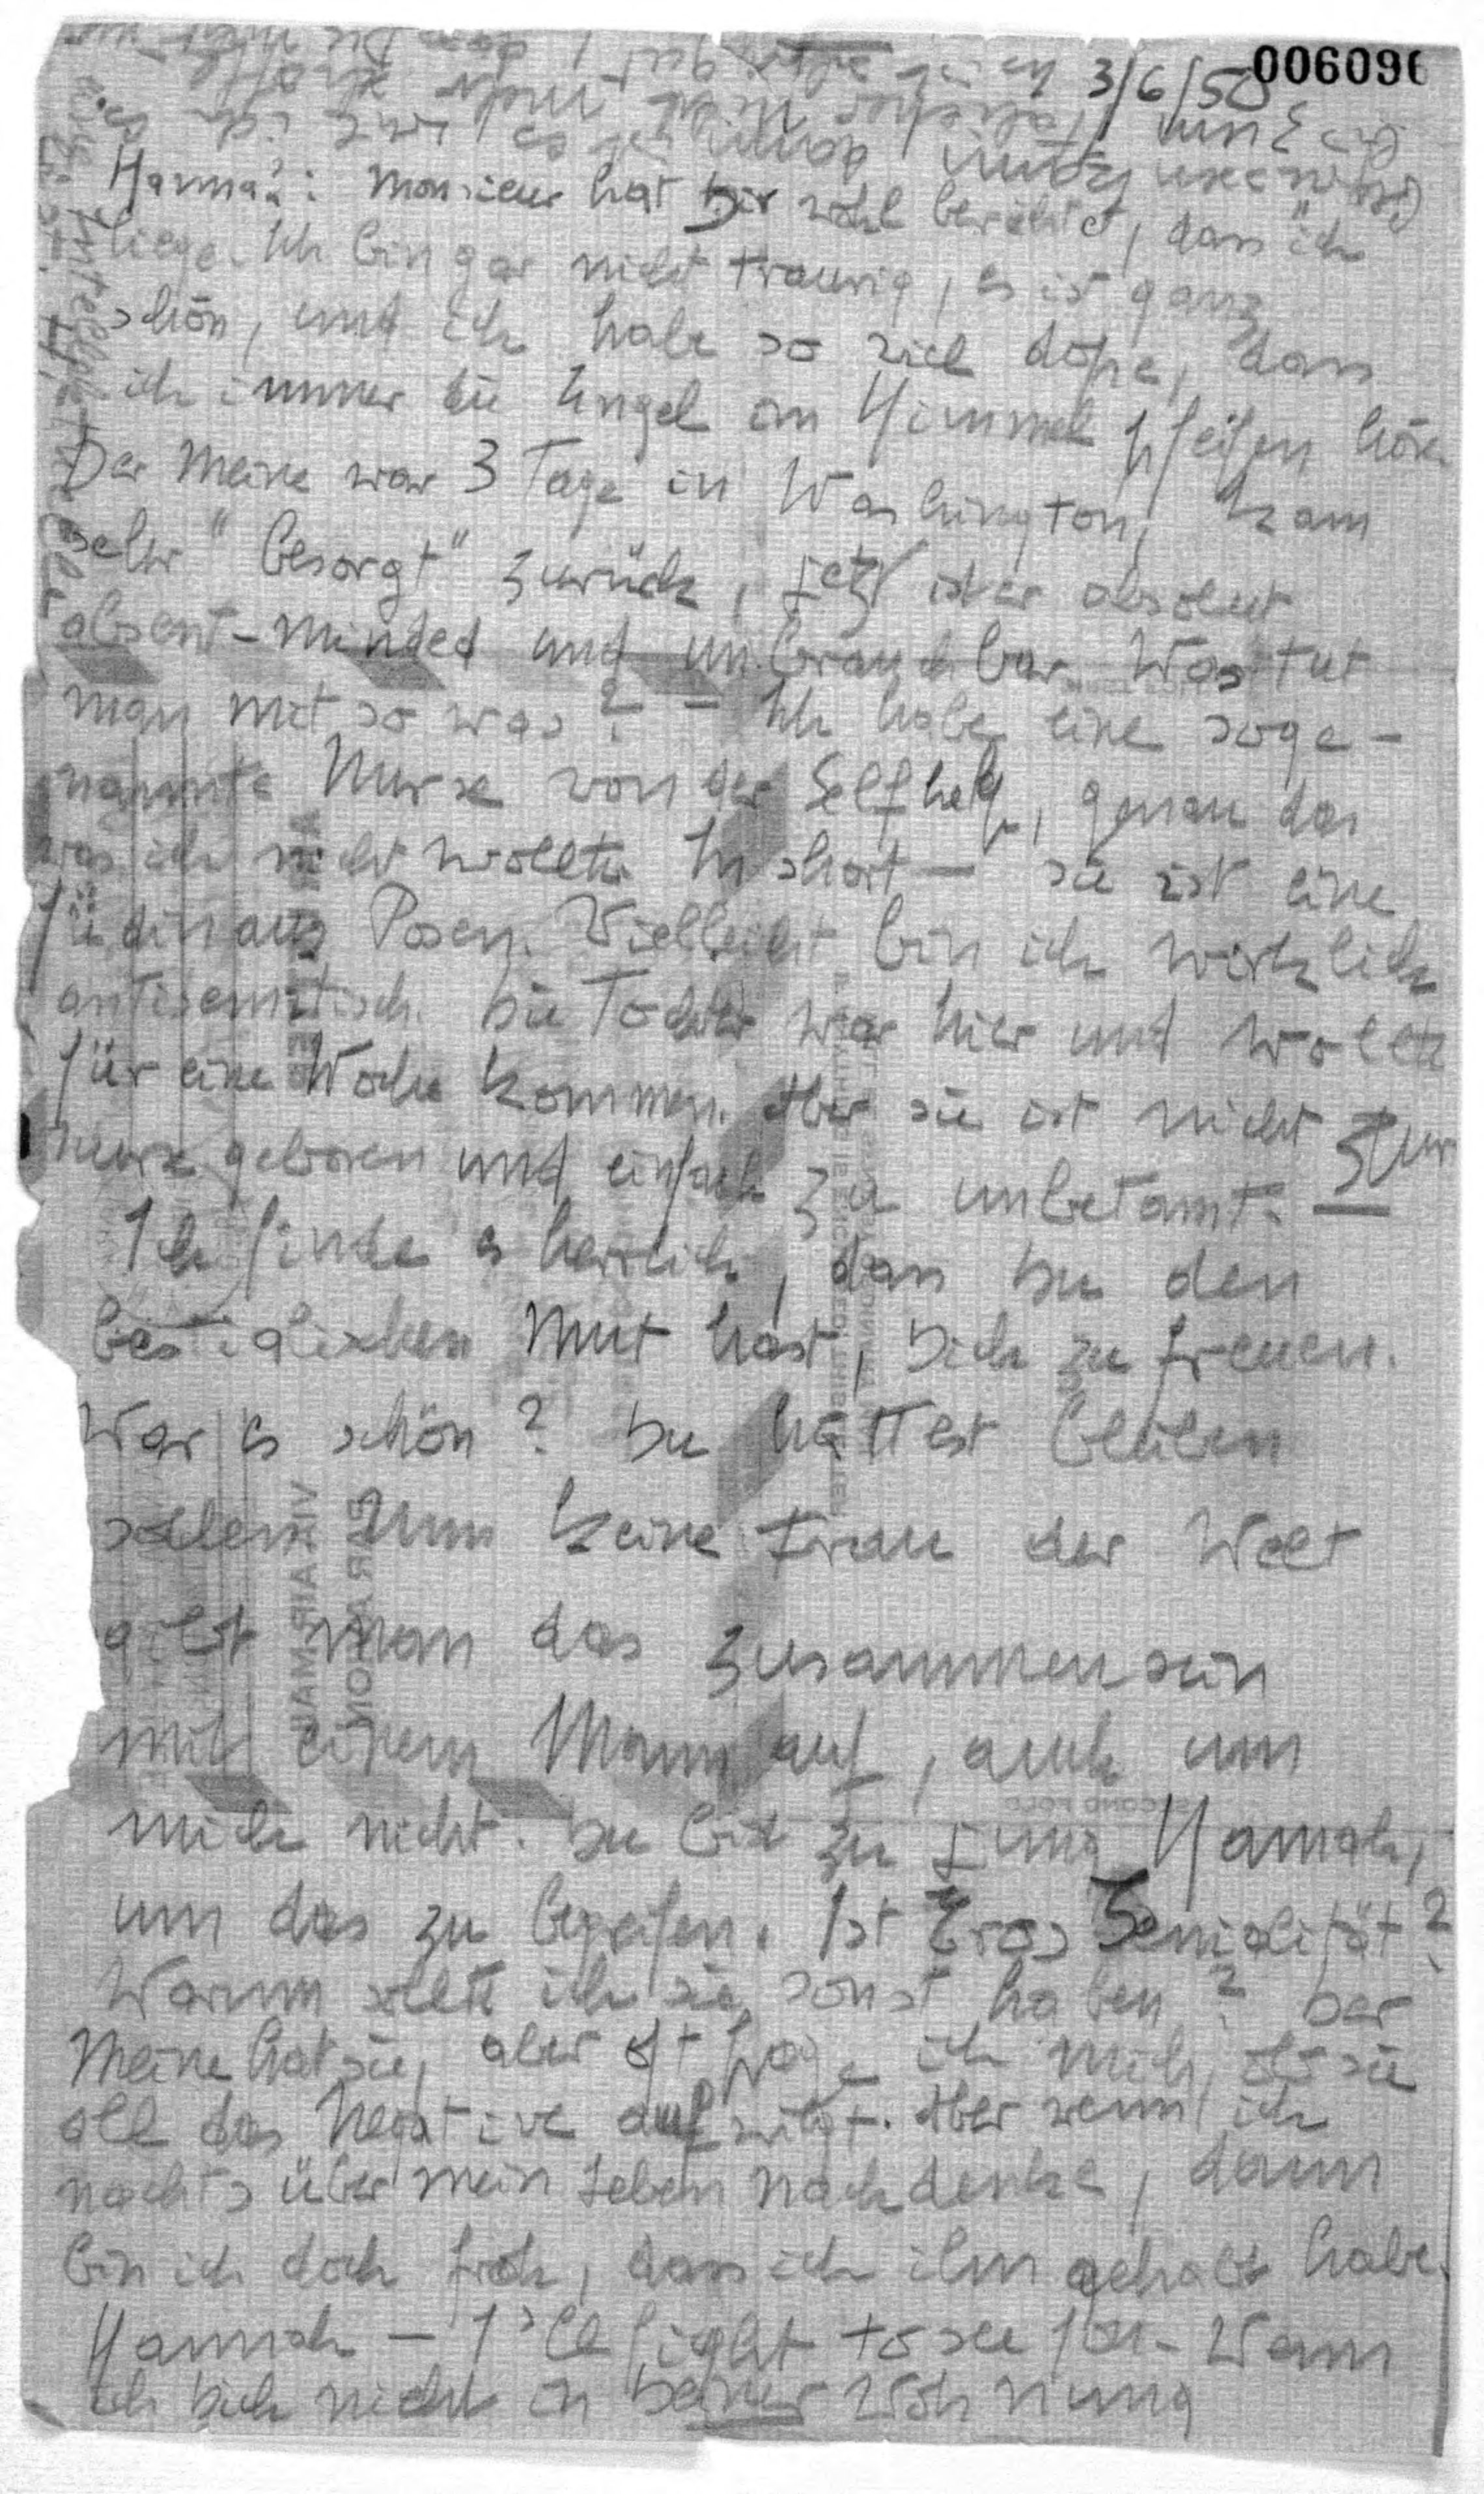 006096
3/6/50
Hannah: Monsieur hat Dir wohl berichtet, dass ich
liege. Ich bin gar nicht traurig, es ist ganz
schön, und ich habe so viel dope, dass
ich immer die Engel im Himmel pfeifen höre.
Der Meine war 3 Tage in Washington, kam
sehr "besorgt" zurück, jetzt ist er absolut
absent-minded und unbrauchbar. Was tut
man mit so was? – Ich habe eine soge-
nannte Nurse von der Selfhelp, genau das
was ich nicht wollte. In short – sie ist eine
Jüdin aus Posen. Vielleicht bin ich wirklich
antisemitisch. Die Tochter war hier und wollte
für eine Woche kommen. Aber sie ist nicht zur
nurse geboren und einfach zu unbetamt. –
Ich finde es herrlich, dass Du den
bestialischen Mut hast, Dich zu freuen.
War es schön? Du hättest bleiben
sollen. Um keine Frau der Welt
gibt man das Zusammensein
mit einem Mann auf, auch um
mich nicht. Du bist zu jung, Hannah,
um das zu begreifen. Ist Eros Genialität?
Warum sollte ich sie sonst haben? Der
Meine hat sie, aber oft frage ich mich, ob sie
all das Negative aufwiegt. Aber wenn ich
nachts über mein Leben nachdenke, dann
bin ich doch froh, dass ich ihn gehabt habe.
Hannah – I'll fight to see you. Wenn
ich Dich nicht in Deiner Wohnung